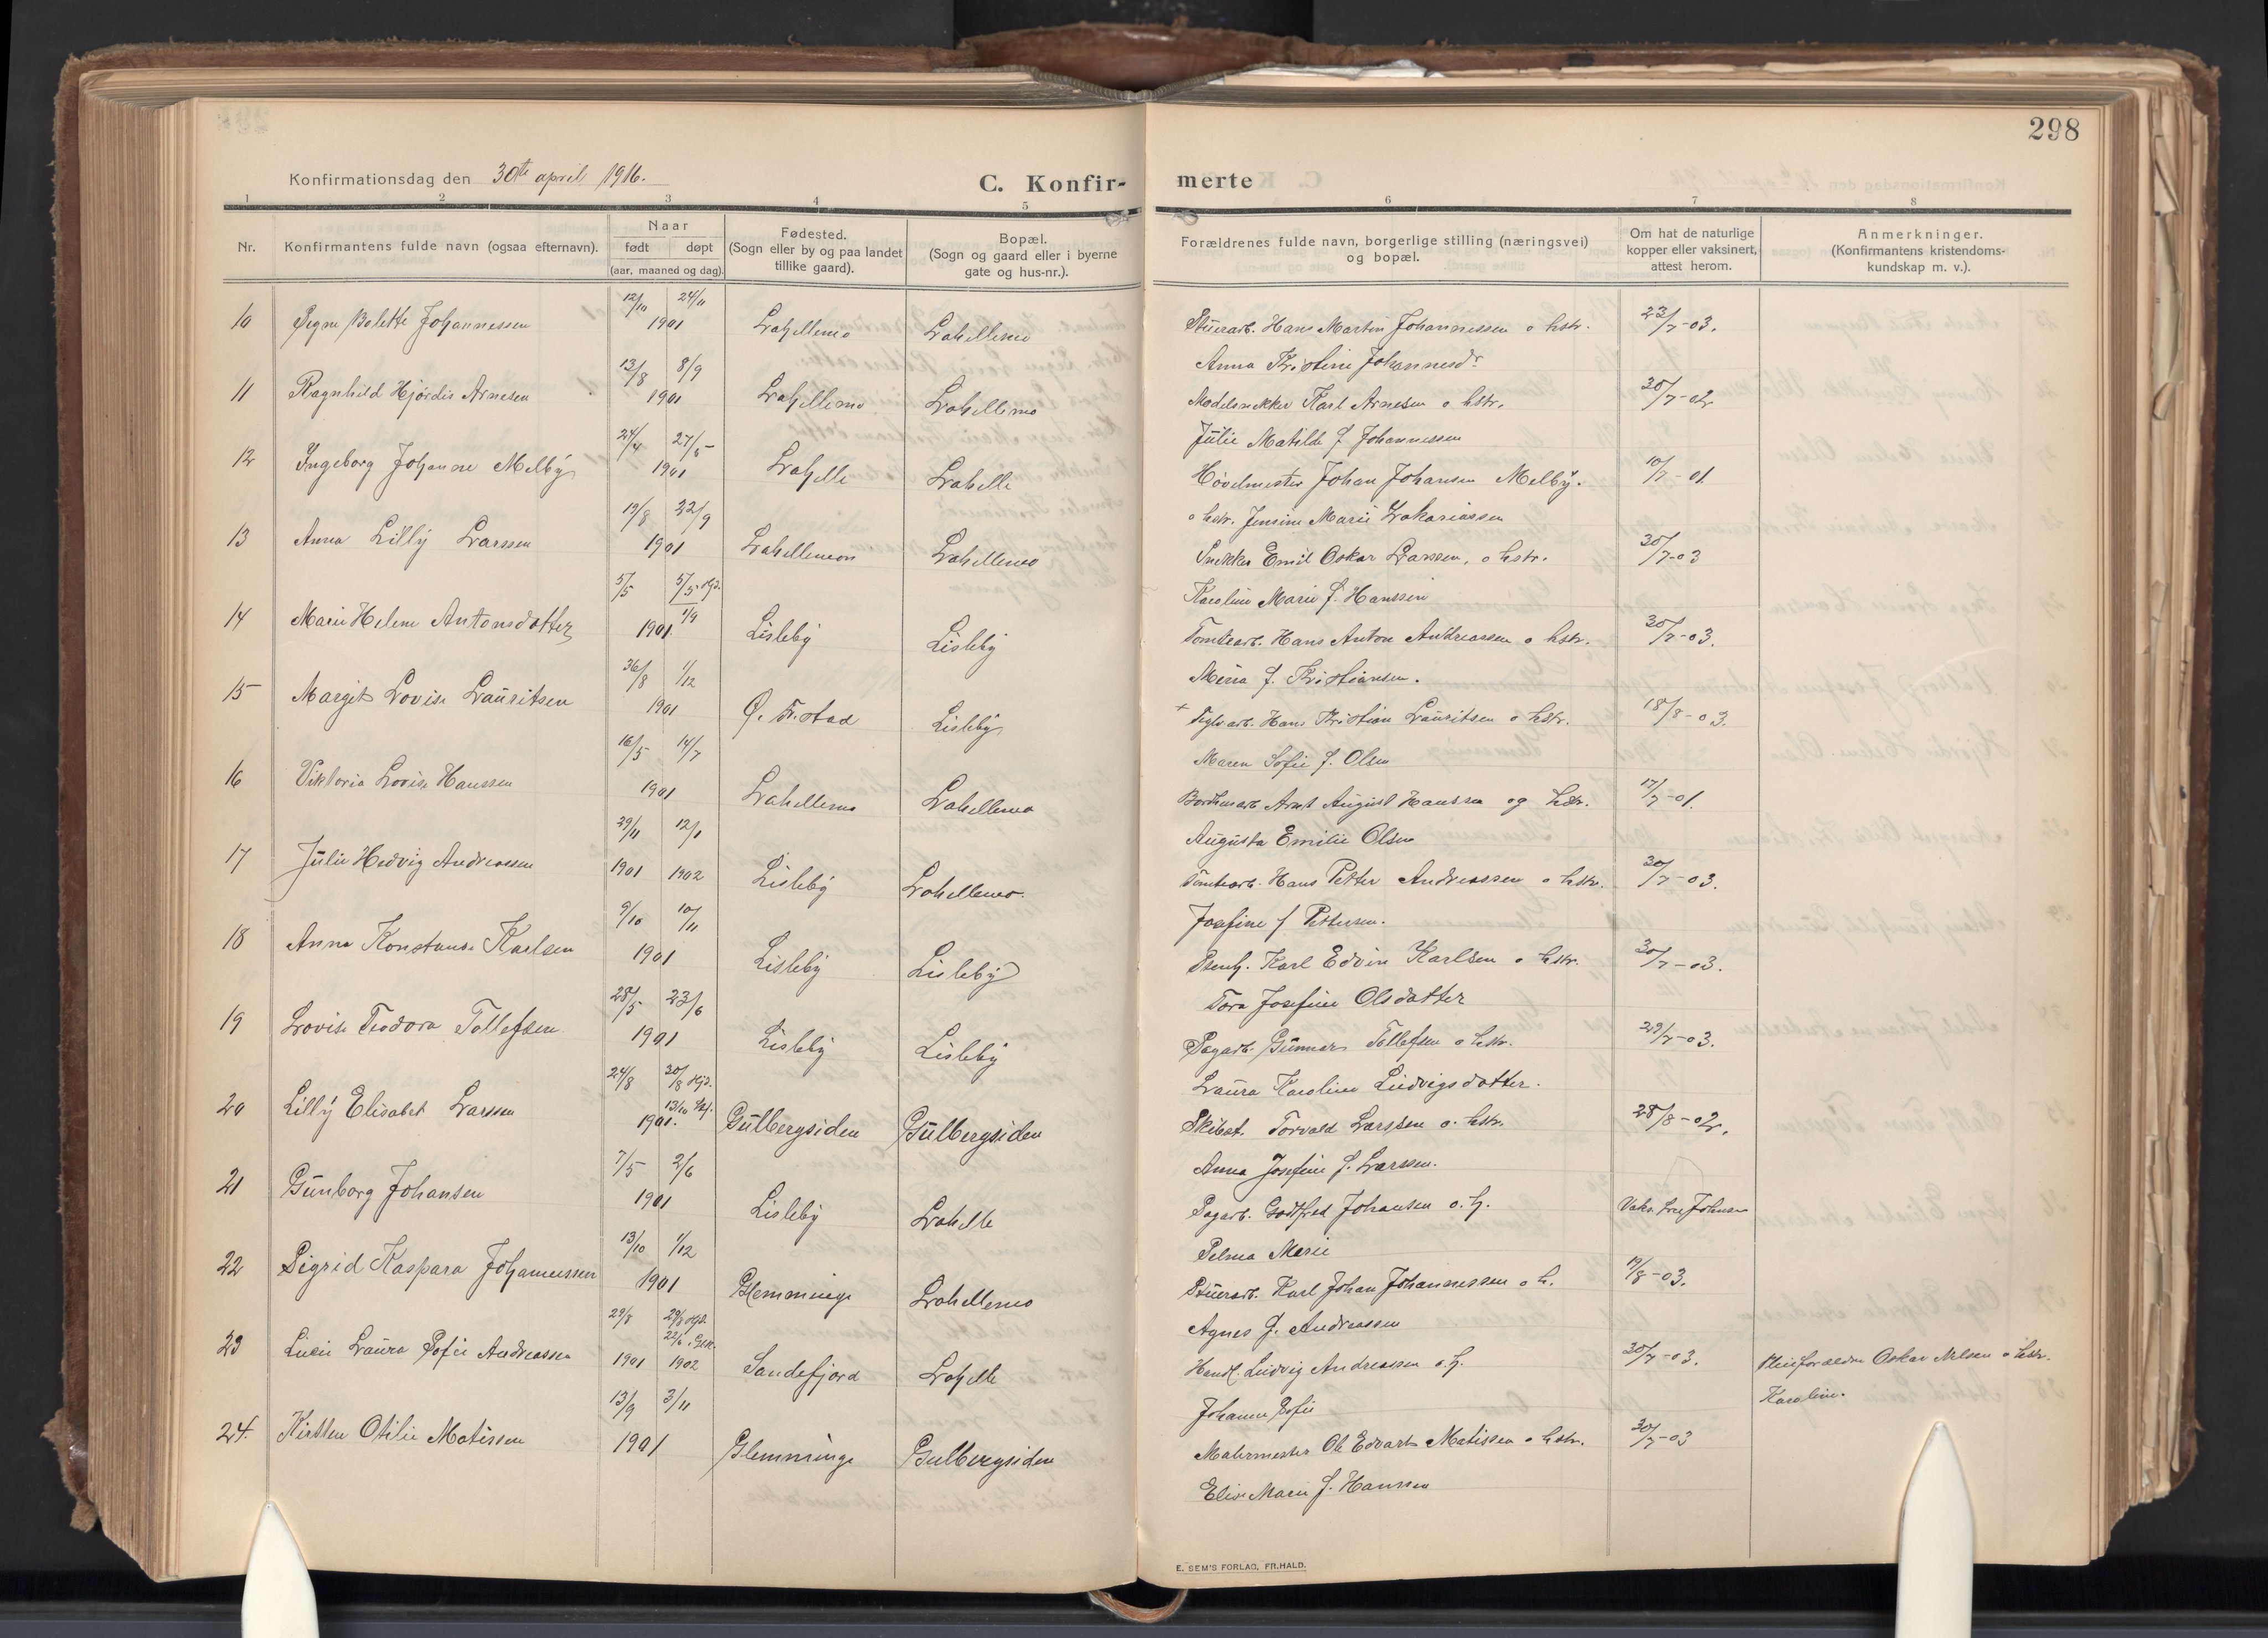 298
Konfirmationsdag den 30te april 1916.
C. Konfir-
merte
1 2 3 4 5 6 7 8
Nr.
Konfirmantens fulde navn (ogsaa efternavn).
Naar
født døpt
(aar, maaned og dag).
Fødested.
(Sogn eller by og paa landet
tillike gaard).
Bopæl.
(Sogn og gaard eller i byerne
gate og hus-nr.).
Forældrenes fulde navn, borgerlige stilling (næringsvei)
og bopæl.
Om hat de naturlige
kopper eller vaksinert,
attest herom.
Anmerkninger.
(Konfirmantens kristendoms-
kundskap m. v.).
12/10 24/11
10 Signe Bolette Johannessen 1901 Lahellemo Lahellemo Stuerarb. Hans Martin Johannessen o hstr. 23/7-03.
Anna Kristine Johannesdr
13/8 8/9
11 Ragnhild Hjørdis Arnesen 1901 Lahellemo Lahellemo Modelsnekker Karl Arnesen o hstr. 30/7-02
Julie Matilde f Johannessen
24/4 27/5
12 Ingeborg Johanne Melby 1901 Lahelle Lahelle Høvelmester Johan Johansen Melby. 10/7-01.
o hstr. Jensine Marie Zakariassen
19/8 22/9
13 Anna Lilly Larssen 1901 Lahellemoen Lahellemo Snekker Emil Oskar Larssen, o hstr. 30/7-03
Karoline Marie f. Hanssen
5/5 5/5 hjd.
1/9
14 Marie Helene Antonsdatter 1901. Lisleby Lisleby Tomtearb. Hans Anton Andreassen o hstr. 30/7-03.
Mina f. Kristiansen.
26/8 1/12
15 Margit Lovise Lauritsen 1901 Ø. Fr.stad Lisleby + Teglv.arb. Hans Kristian Lauritsen o hstr. 18/8-03.
Maren Sofie f. Olsen
16/5 14/7
16 Viktoria Lovise Hanssen 1901 Lahellemo Lahellemo Bordtmarb. Arnt August Hanssen og hstr. 17/7-01.
Augusta Emilie Olsen
29/11 12/1
17 Julie Hedvig Andreassen 1901 1902 Lisleby Lahellemo. Tomtearb. Hans Petter Andreassen o hstr. 30/7-03.
Josefine f Pettersen.
9/10 10/11
18 Anna Konstanse Karlsen 1901 Lisleby Lisleby Stenh. Karl Edvin Karlsen o hstr. 30/7-03.
Tora Josefine Olsdatter
28/5 23/6
19 Lovise Teodora Tollefsen 1901 Lisleby Lisleby Sagarb. Gunnar Tollefsen o hstr. 29/7-03.
Laura Karoline Ludvigsdatter.
24/8 30/8 hjd.
13/10
20 Lilly Elisabet Larssen 1901. Gulbergsiden Gulbergsiden Skibst. Torvald Larssen o. hstr. 28/8-02.
Anna Josefine f. Larssen.
7/5 2/6
21 Gunborg Johansen 1901 Lisleby Lahelle Sagarb. Godtfred Johansen o. h.
Selma Marie
13/10 1/12
22 Sigrid Kaspara Johannessen 1901 Glemminge Lahellemo Stuerarb. Karl Johan Johannessen o h. 19/8-03.
Agnes f. Andreassen
29/8 29/8 hjd.
22/6
23 Lucie Laura Sofie Andreassen 1901 1902 Sandefjord Lahelle Handl. Ludvig Andreassen o. h. 30/7-03. Pleieforældre Oskar Nilsen o hstr.
Johanne Sofie Karoline.
13/9 3/11
24. Kirsten Otilie Matissen 1901 Glemminge Gulbergsiden Malermester Ole Edvart Matissen o hstr. 30/7-03
Elise Marie f. Hanssen
E. SEM'S FORLAG, FR.HALD.